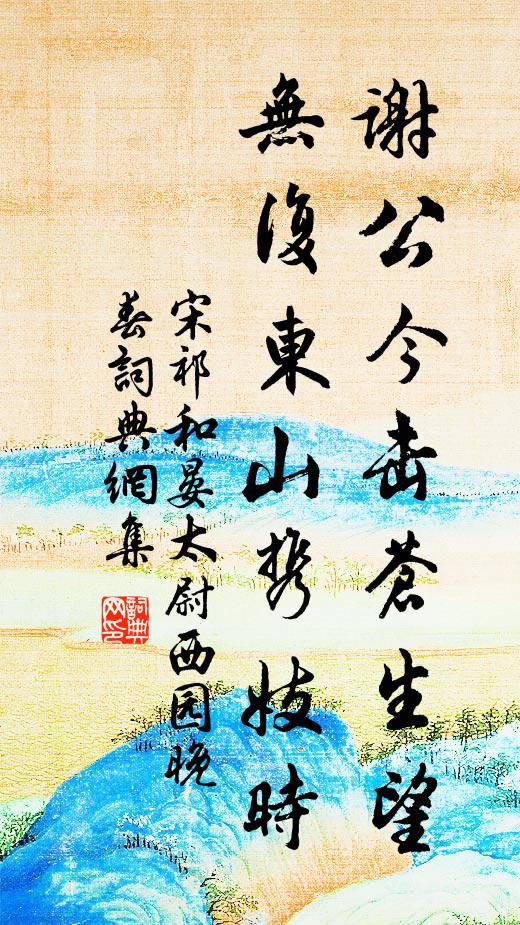 謝公今出蒼生望
無復東山携妓時
宋祁和晏太尉西园晚
春詞典網集
詞典
网印